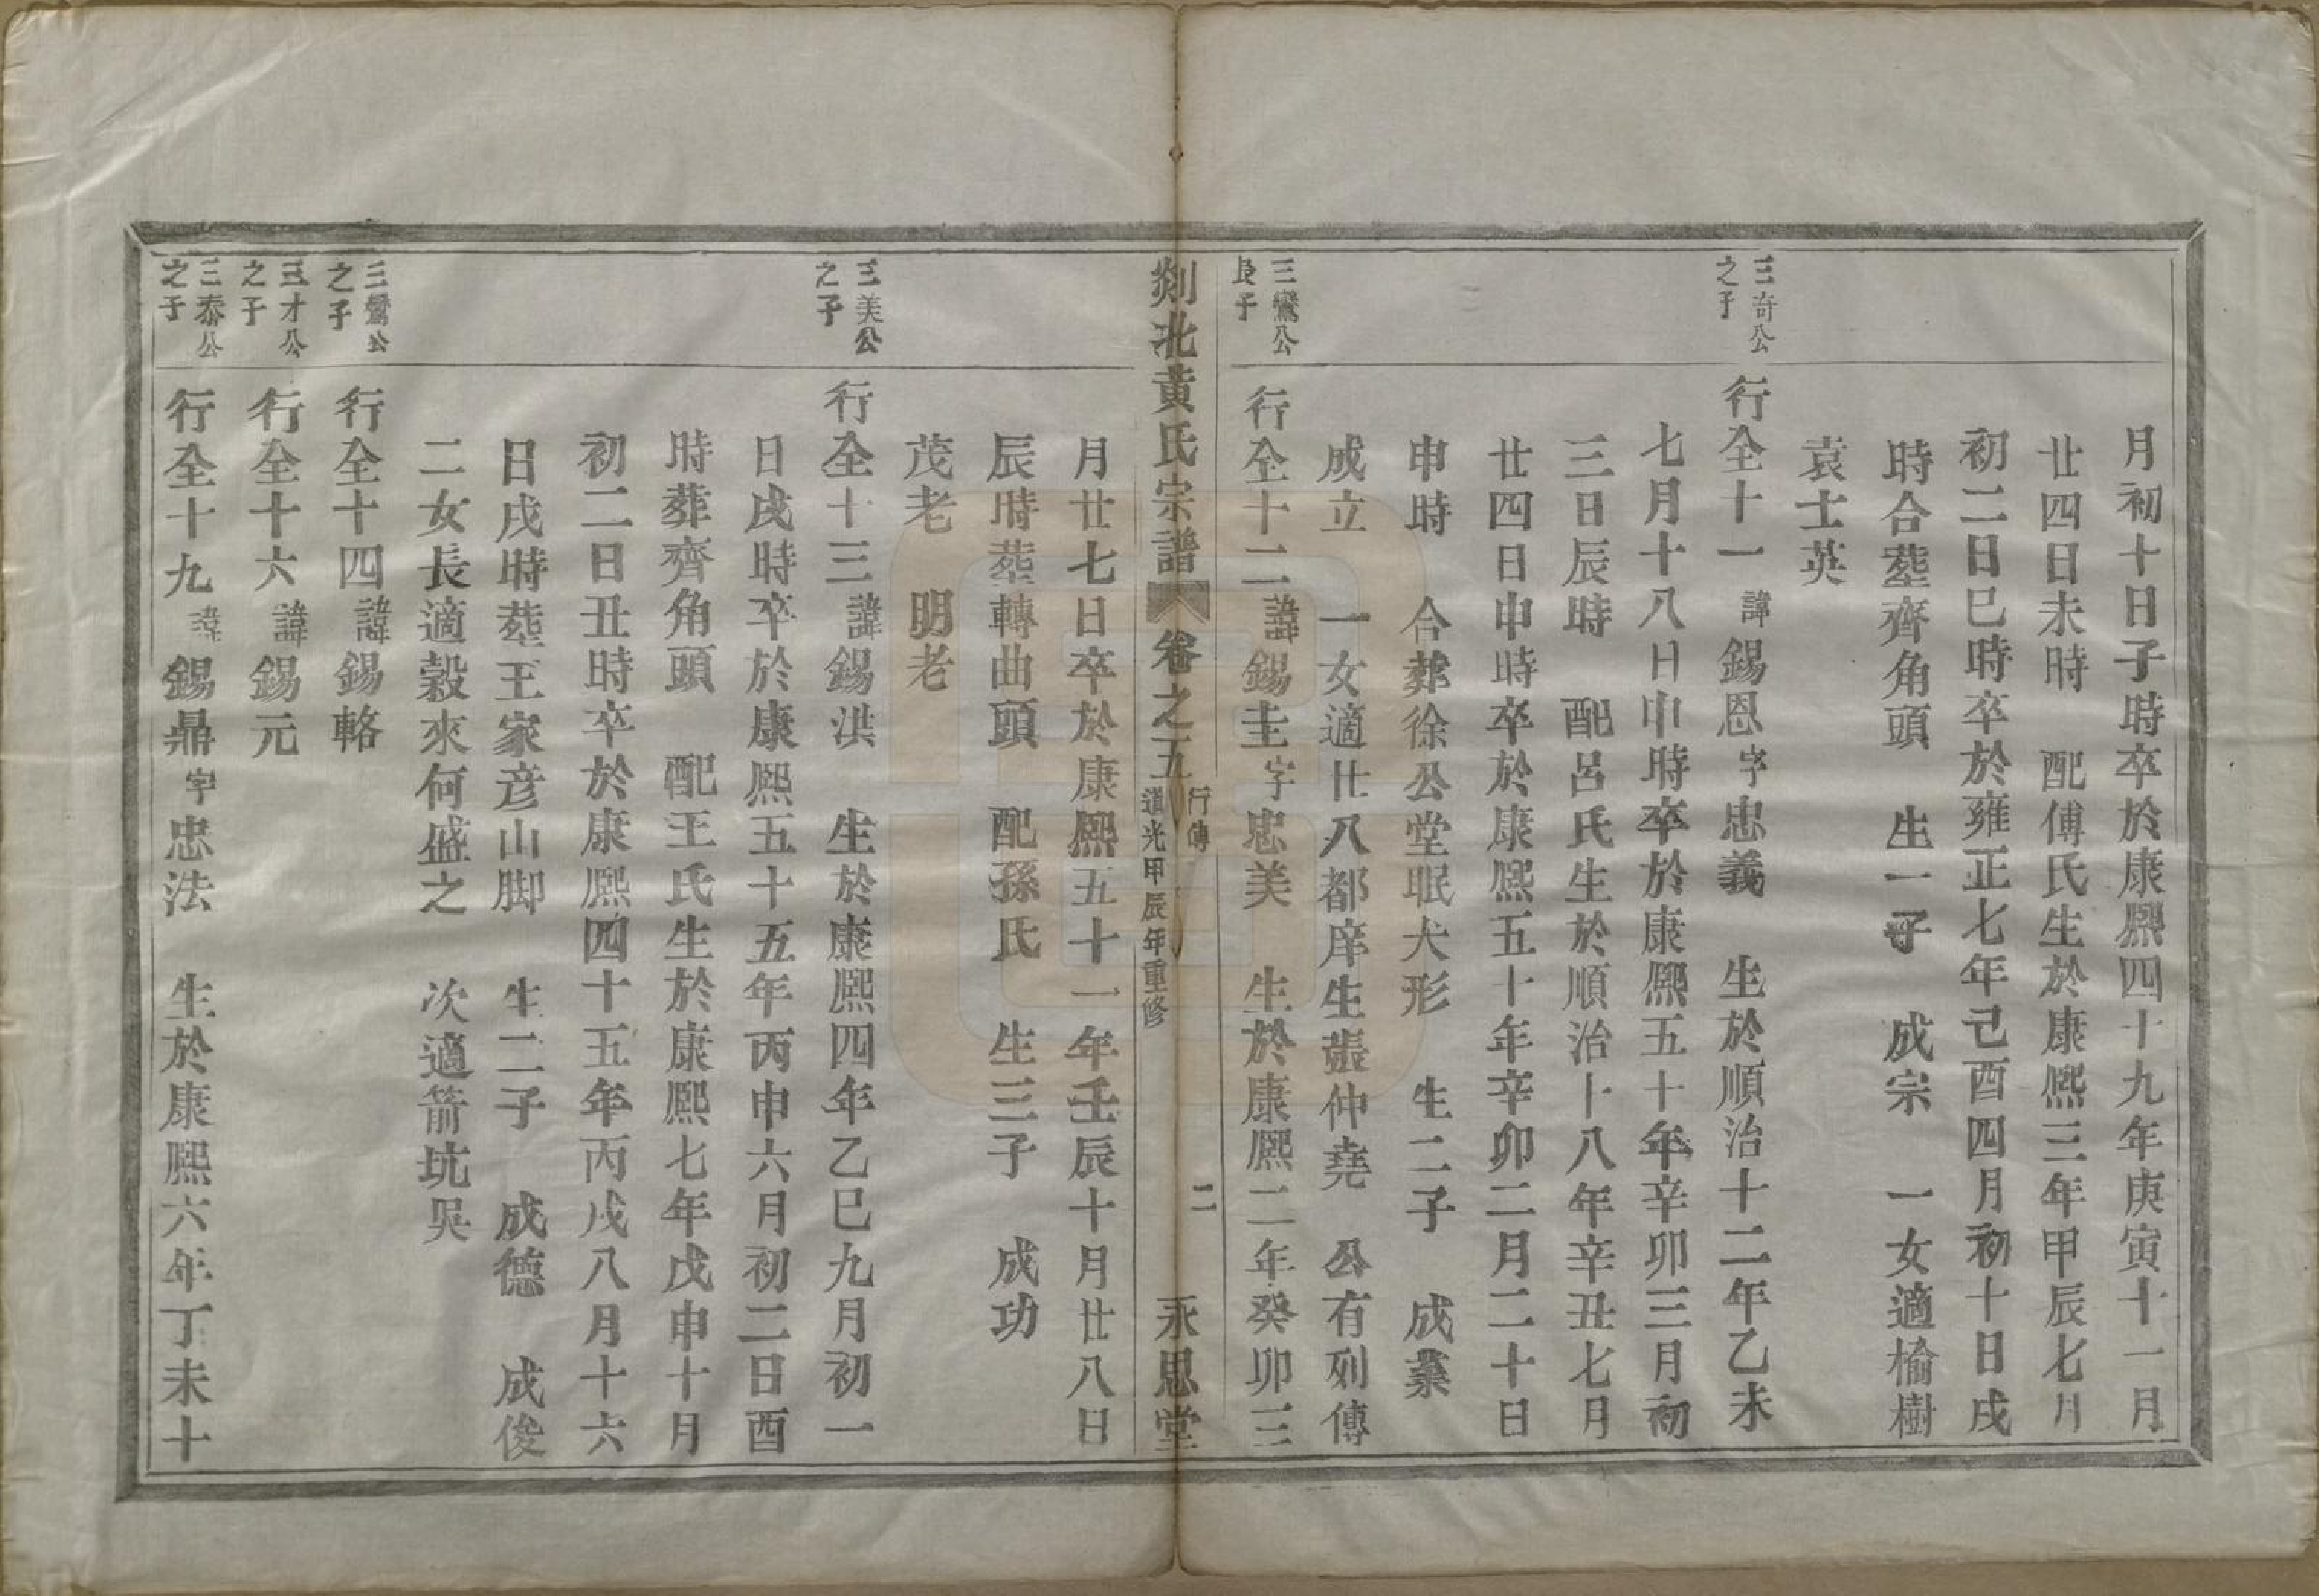 月初十日子時卒於康熙四十九年庚寅十一月
廿四日未時　配傅氏生於康熙三年甲辰七月
初二日巳時卒於雍正七年己酉四月初十日戌
時合塟齊角頭　生一子　成宗　一女適榆樹
袁士英
三奇公之子
行全十一諱錫恩字忠義　生於順治十二年乙未
七月十八日申時卒於康熙五十年辛卯三月初
三日辰時　配呂氏生於順治十八年辛丑七月
廿四日申時卒於康熙五十年辛卯二月二十日
申時　合葬徐公堂眠犬形　生二子　成業
成立　一女適廿八都庠生張仲堯　公有列傳
三鸞公長子
行全十二諱錫圭字忠美　生於康熙二年癸卯三
剡北黄氏宗譜　卷之五　行傳　道光甲辰年重修　二　永思堂
月廿七日卒於康熙五十一年壬辰十月廿八日
辰時塟轉曲頭　配孫氏　生三子　成功
茂老　明老
三美公之子
行全十三諱錫洪　生於康熙四年乙巳九月初一
日戌時卒於康熙五十五年丙申六月初二日酉
時葬齊角頭　配王氏生於康熙七年戊申十月
初二日丑時卒於康熙四十五年丙戌八月十六
日戌時塟王家彦山脚　生二子　成德　成俊
二女長適穀來何盛之　次適箭坑吳
三鸞公之子
行全十四諱錫輅
三才公之子
行全十六諱錫元
三泰公之子
行全十九諱錫鼎字忠法　生於康熙六年丁未十